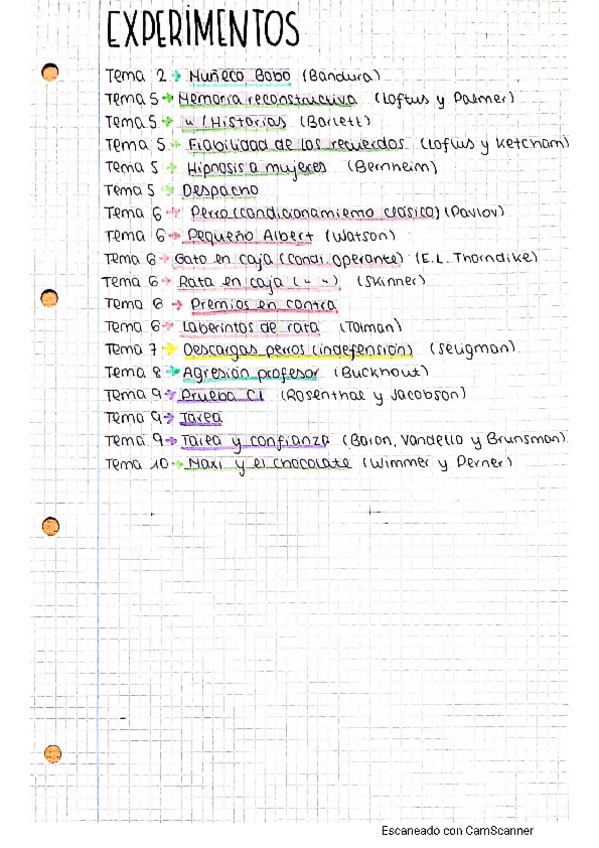 EXPERIMENTOS
Tema 2 → Muñeco Bobo (Bandura)
Tema 5 → Memoria reconstructiva (Loftus y Palmer)
Tema 5 → " (Historias (Barlett)
Tema 5 → Fiabilidad de los recuerdos (Loftus y Ketcham)
Tema 5 → Hipnosis a mujeres (Bernheim)
Tema 5 → Despacho
Tema 6 → Perro (condicionamiento clásico) (Pavlov)
Tema 6 → Pequeño Albert (Watson)
Tema 6 → Gato en caja (Condi. operante) (E.L. Thorndike)
Tema 6 → Rata en caja ( " " ) (Skinner)
Tema 6 → Premios en contra
Tema 6 → Laberintos de rata (Tolman)
Tema 7 → Descargas perros (indefensión) (Seligman).
Tema 8 → Agresión profesor (Buckhout)
Tema 9 → Prueba CI (Rosenthal y Jacobson)
Tema 9 → Tarea
Tema 9 → Tarea y confianza (Baron, Vandello y Brunsman)
Tema 10 → Maxi y el chocolate (Wimmer y Perner)
Escaneado con CamScanner